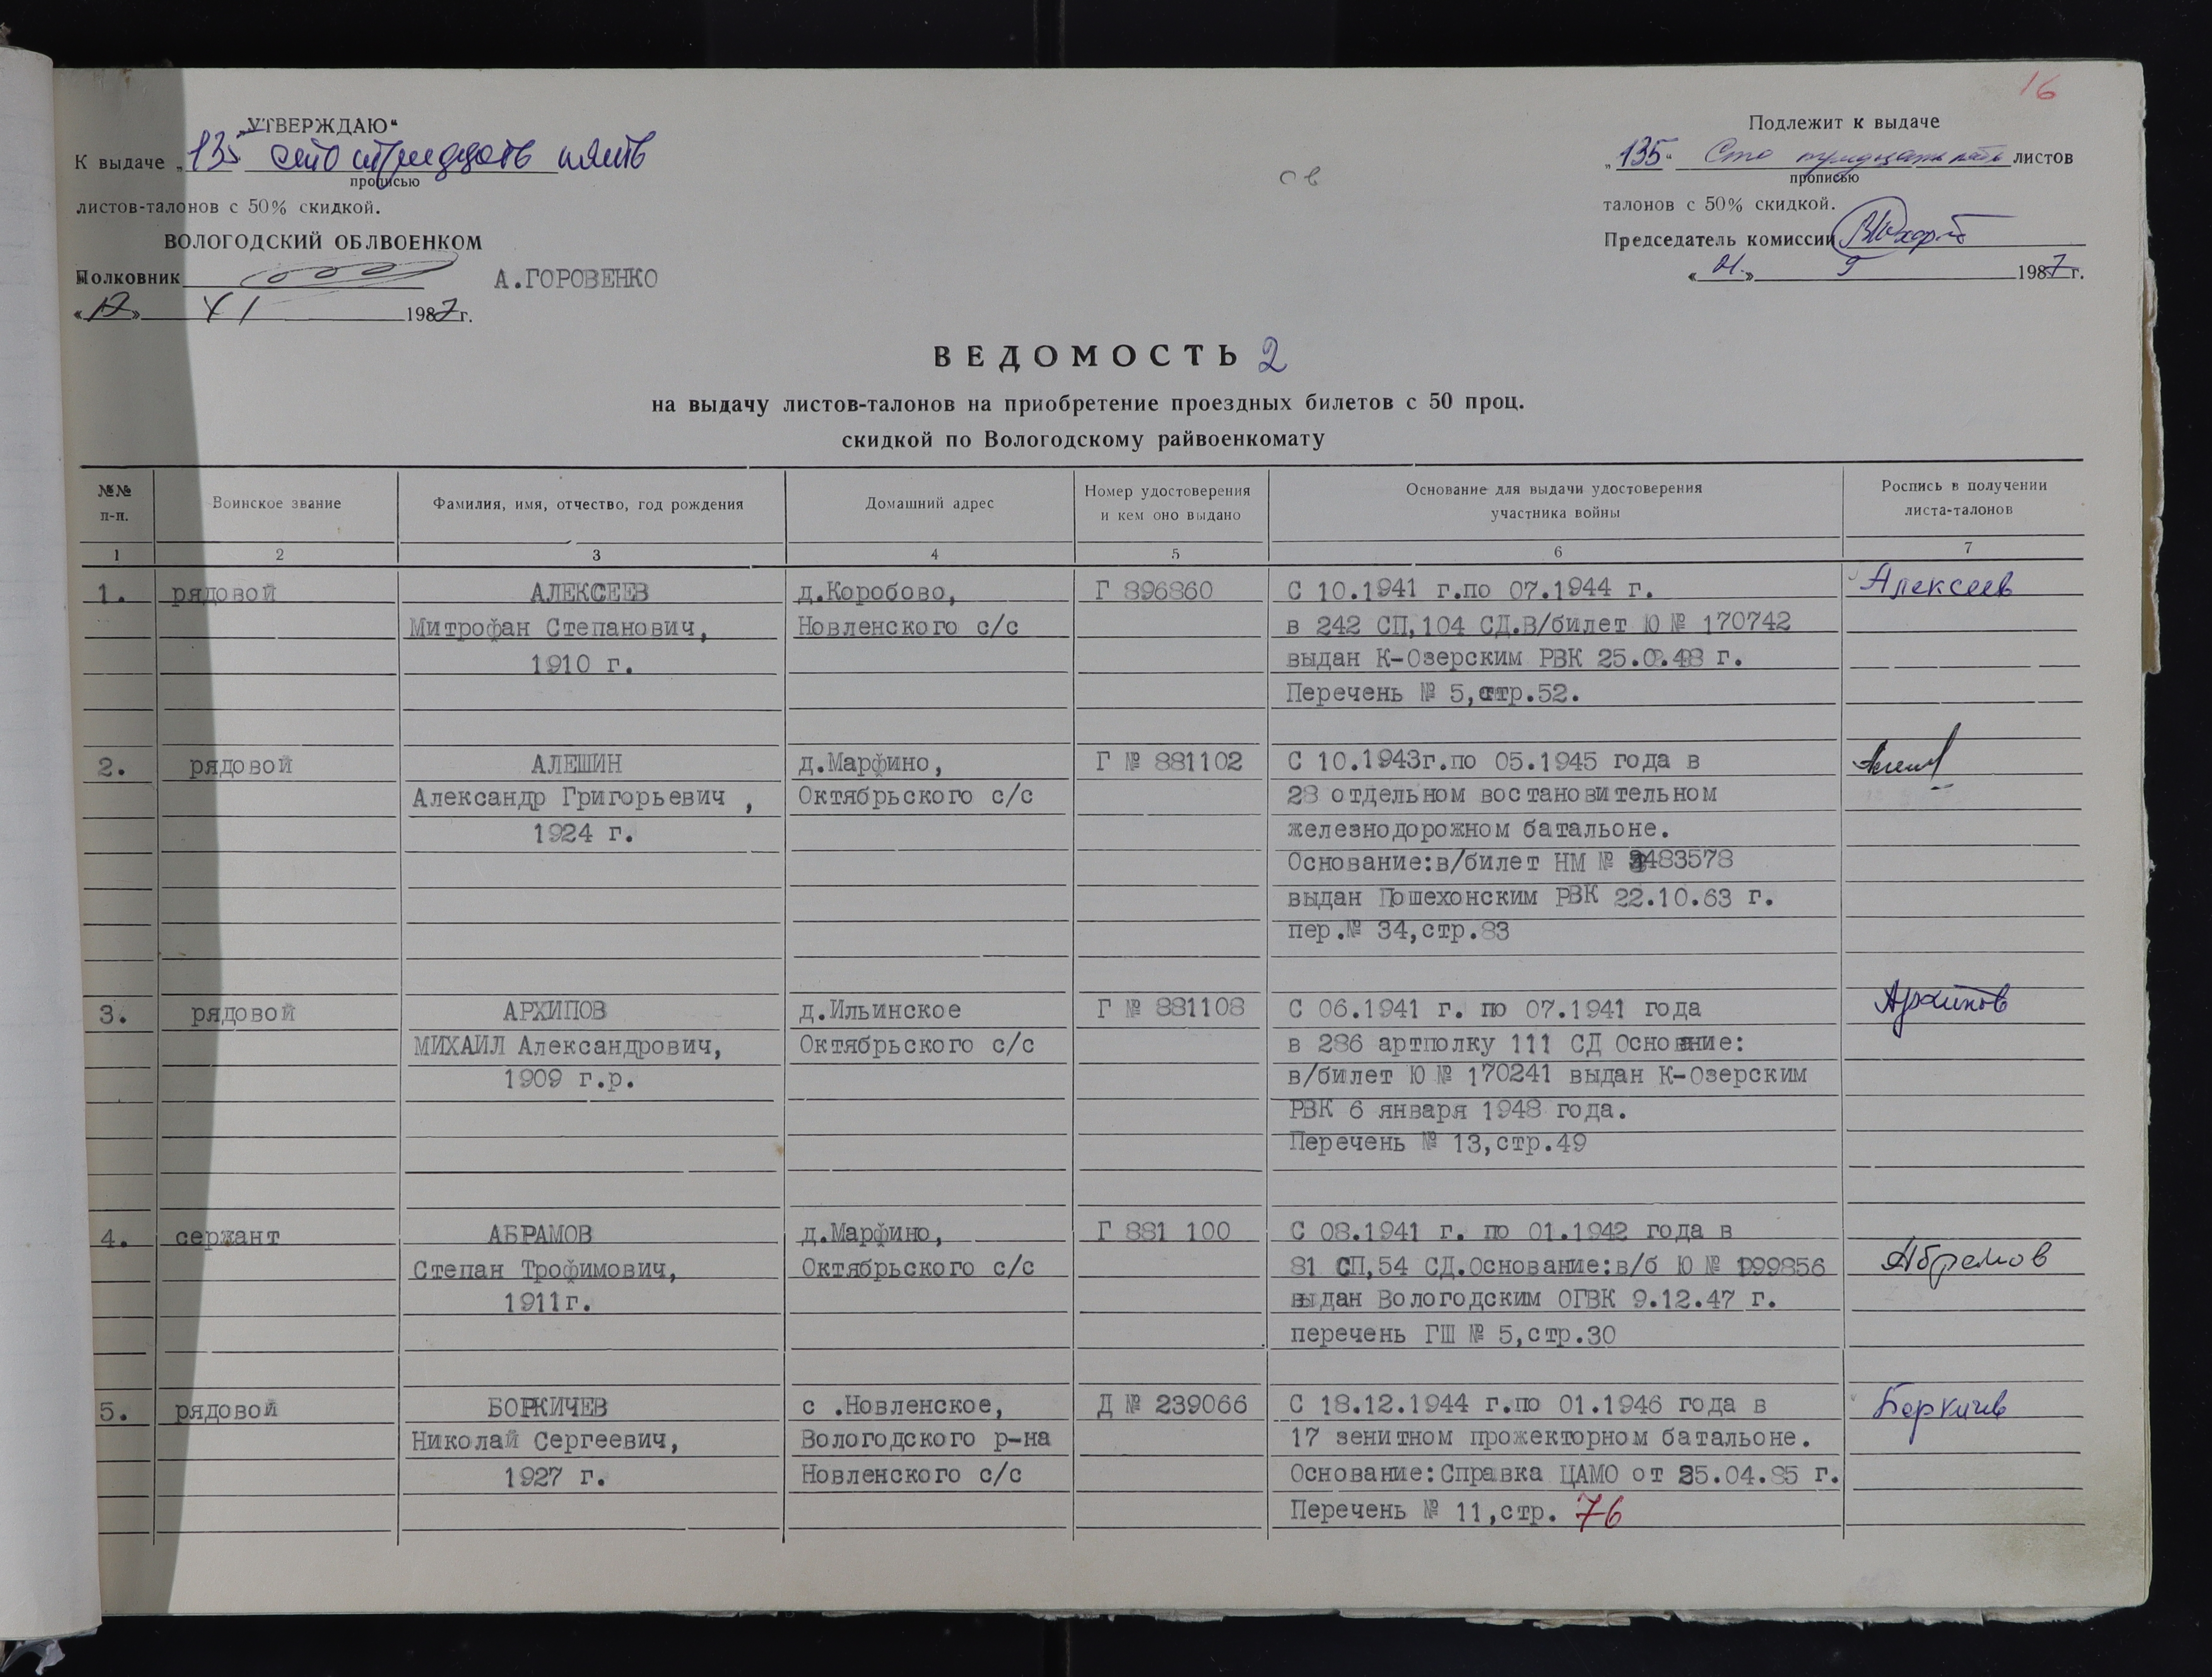 16
„УТВЕРЖДАЮ“
К выдаче „135 сто тридцать пять
прописью
листов-талонов с 50% скидкой.
ВОЛОГОДСКИЙ ОБЛВОЕНКОМ
Полковник А.ГОРОВЕНКО
«12» XI 1987г.
ов
Подлежит к выдаче
„135“ Сто тридцать пять листов
прописью
талонов с 50% скидкой.
Председатель комиссии
« » 9 1987г.
ВЕДОМОСТЬ 2
на выдачу листов-талонов на приобретение проездных билетов с 50 проц.
скидкой по Вологодскому райвоенкомату
№№ п-п. Воинское звание Фамилия, имя, отчество, год рождения Домашний адрес Номер удостоверения и кем оно выдано Основание для выдачи удостоверения участника войны Роспись в получении листа-талонов
1 2 3 4 5 6 7
1. рядовой АЛЕКСЕЕВ д.Коробово, Г 896860 С 10.1941 г.по 07.1944 г. Алексеев
Митрофан Степанович, Новленского с/с в 242 СП,104 СД.В/билет Ю № 170742
1910 г. выдан К-Озерским РВК г.
Перечень № 5,стр.52.
2. рядовой АЛЕШИН д.Марфино, Г № 881102 С 10.1943г.по 05.1945 года в
Александр Григорьевич , Октябрьского с/с 28 отдельном востановительном
1924 г. железнодорожном батальоне.
Основание:в/билет НМ №
выдан Пошехонским РВК 22.10.63 г.
пер.№ 34,стр.83
3. рядовой АРХИПОВ д.Ильинское Г № 881108 С 06.1941 г. по 07.1941 года Архипов
МИХАИЛ Александрович, Октябрьского с/с в 286 артполку 111 СД Основние:
1909 г.р. в/билет Ю № 170241 выдан К-Озерским
РВК 6 января 1948 года.
Перечень № 13,стр.49
4. сержант АБРАМОВ д.Марфино, Г 881 100 С 08.1941 г. по 01.1942 года в
Степан Трофимович, Октябрьского с/с 81 СП,54 СД.Основание:в/б Ю № Абрамов
1911г. выдан Вологодским ОГВК 9.12.47 г.
перечень ГШ № 5,стр.30
5. рядовой БОРКИЧЕВ с .Новленское, Д № 239066 С 18.12.1944 г.по 01.1946 года в Боркичев
Николай Сергеевич, Вологодского р-на 17 зенитном прожекторном батальоне.
1927 г. Новленского с/с Основание:Справка ЦАМО от 25.04.85 г.
Перечень № 11,стр. 76